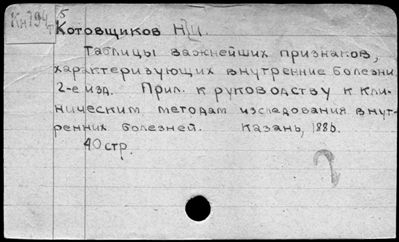 Кн794
5
Котовщиков Н.И.
Таблицы важнейших признаков,
характеризующих внутренние болезни.
2-е изд. Прил. к руководству к кли-
ническим методам изследования внут-
ренних болезней. Казань, 1886.
40 стр.